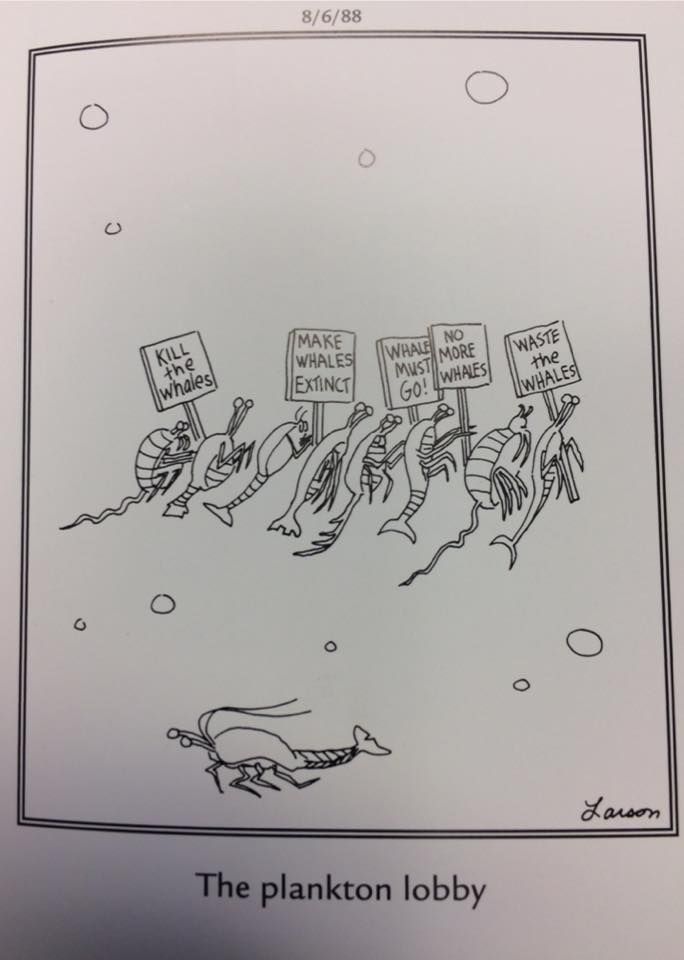 8/6/88
KILL
the
whales
MAKE
WHALES
EXTINCT
WHALE
MUST
GO!
NO
MORE
WHALES
WASTE
the
WHALES
Larson
The plankton lobby